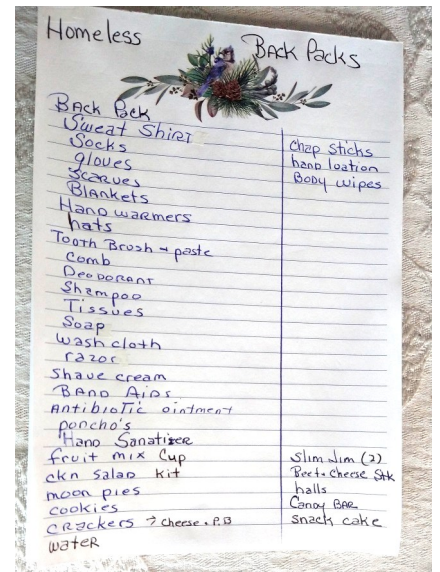 Homeless
Back Packs
Back Pack
Sweat Shirt
Socks
gloves
Scarves
Blankets
Hand warmers
hats
Tooth Brush + paste
Comb
Deodorant
Shampoo
Tissues
Soap
wash cloth
razor
Shave cream
Band Aids
Antibiotic ointment
poncho's
Hand Sanatizer
fruit mix Cup
ckn Salad kit
moon pies
cookies
crackers → cheese + P.B
water
Chap Sticks
hand loation
Body wipes
Slim Jim (2)
Beef + Cheese Stk
halls
Candy BAR
snack cake